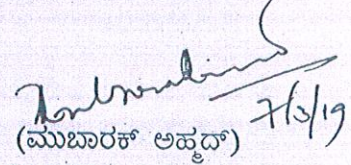 7/3/19
(ಮುಬಾರಕ್ ಅಹ್ಮದ್)